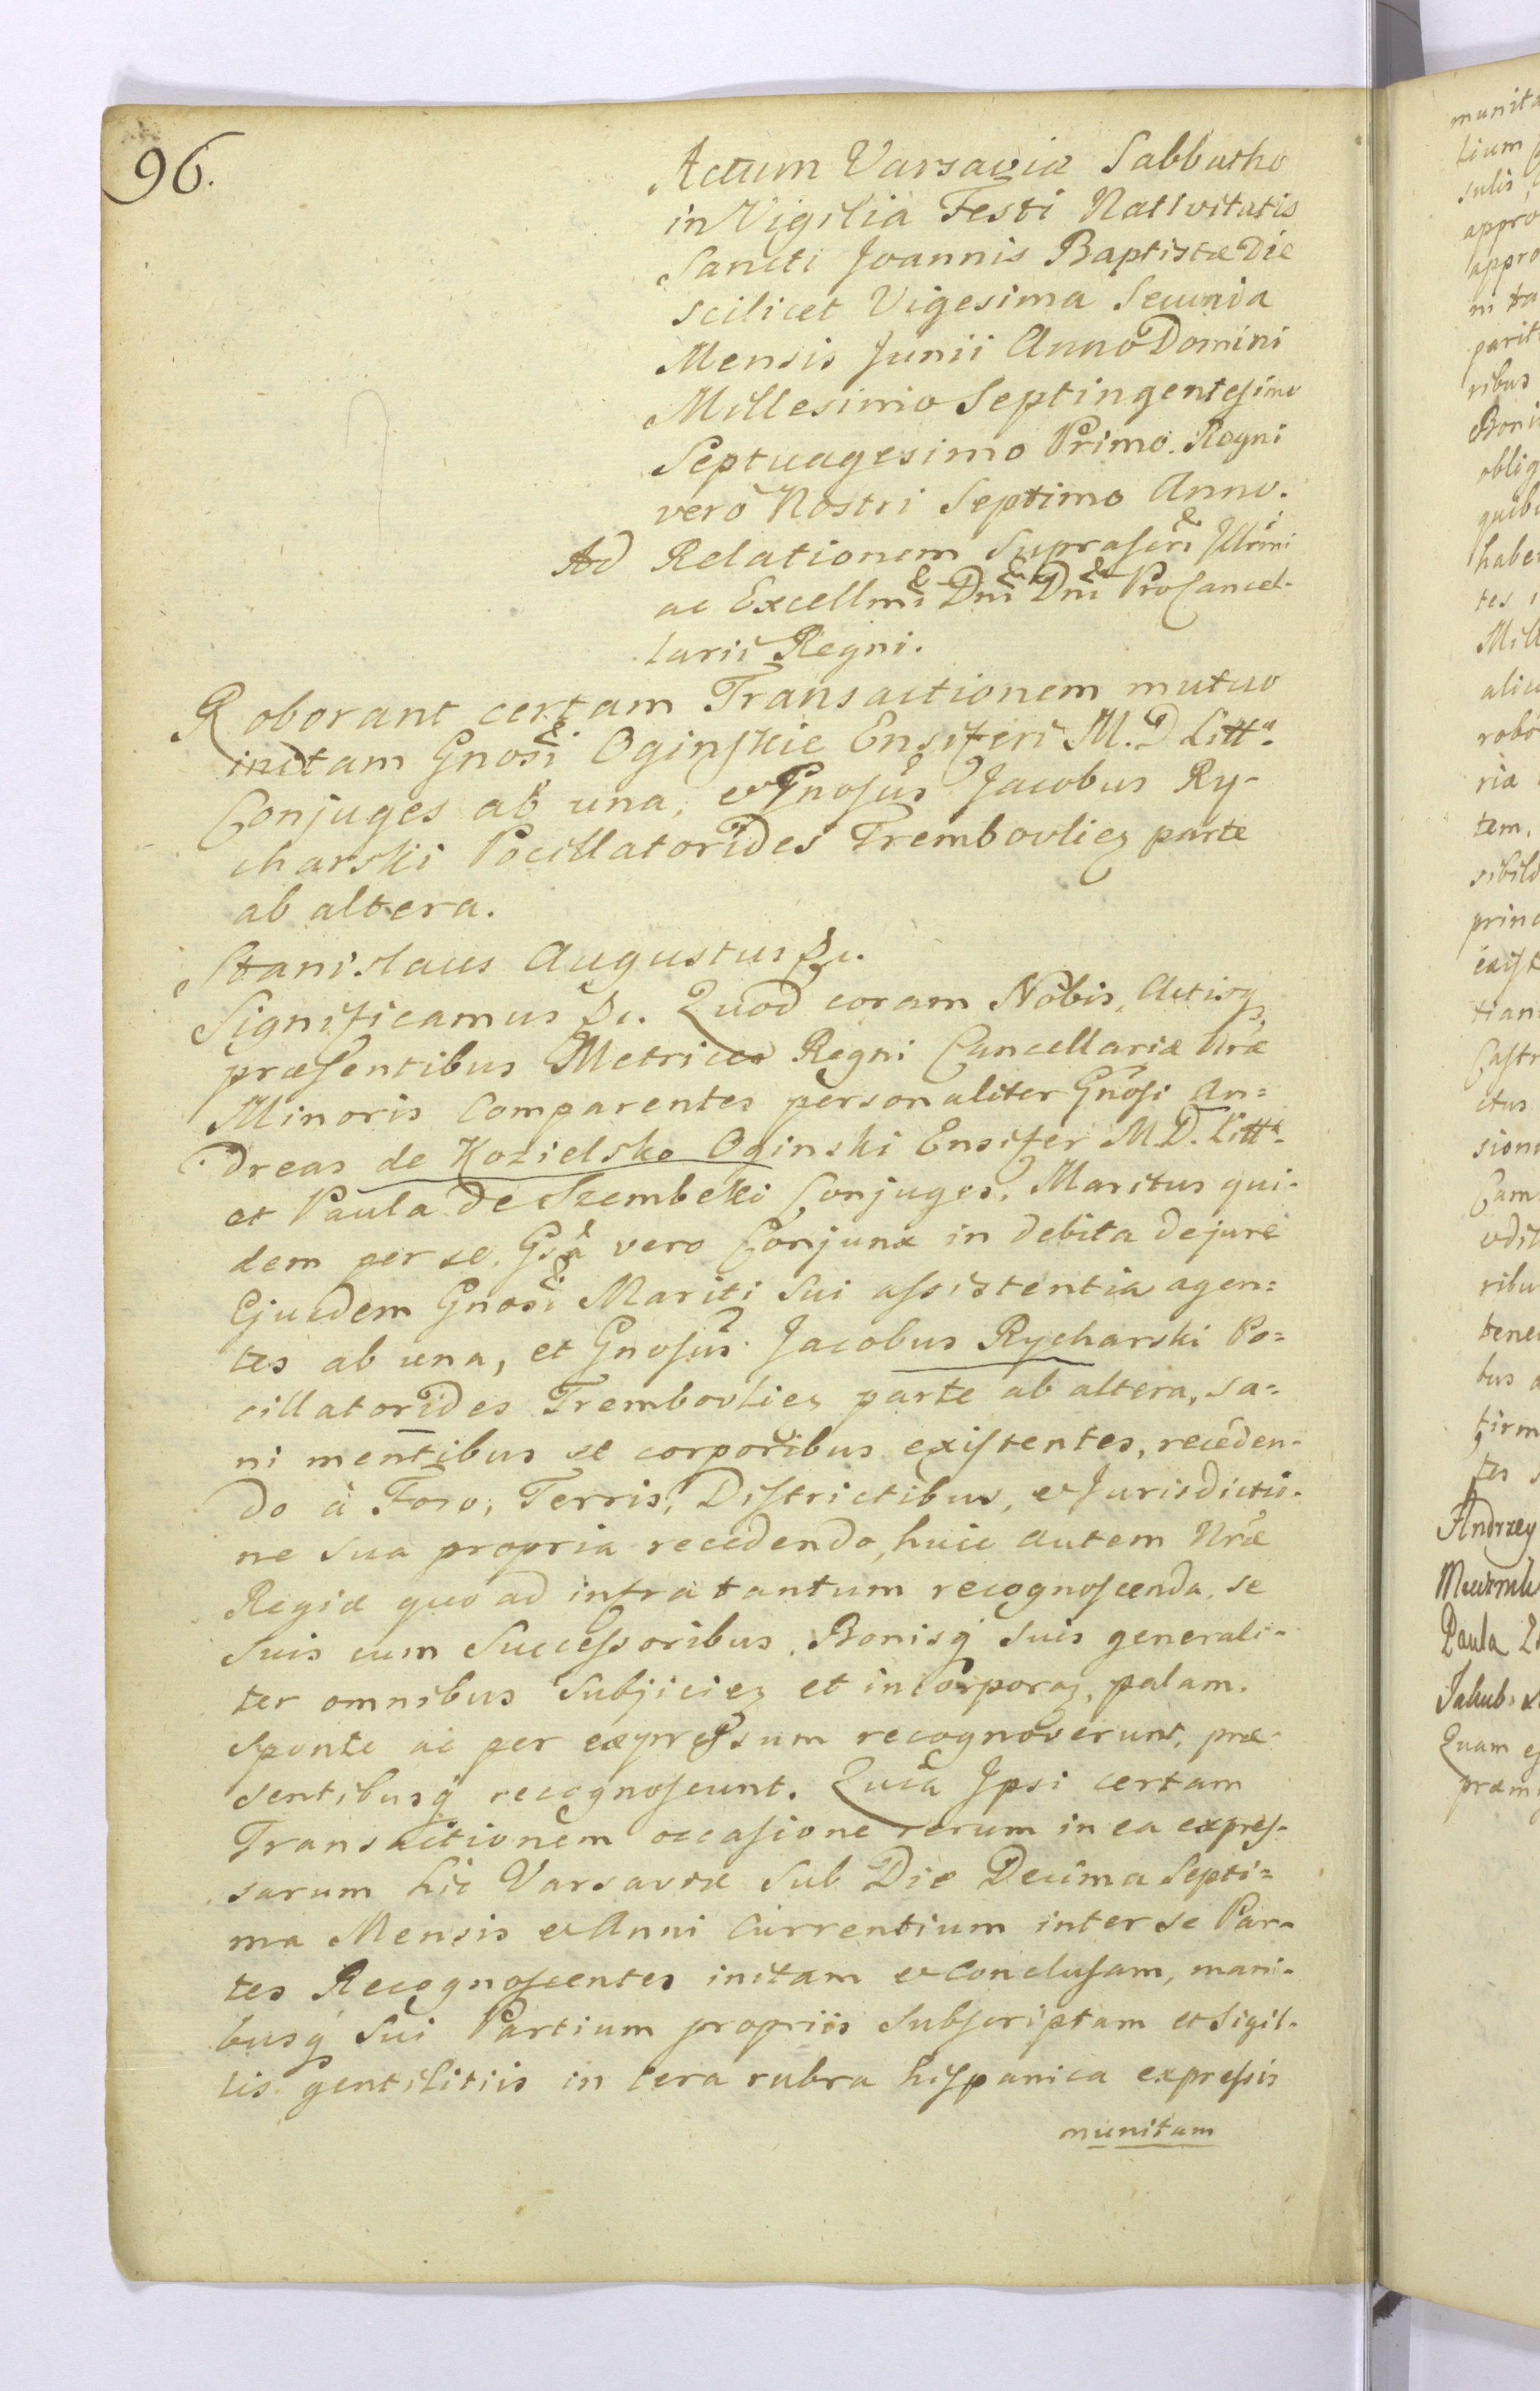 96.
Actum Varsaviæ Sabbatho
in Vigilia Festi Nativitatis
Sancti Joannis Baptistæ Die
scilicet Vigesima Secunda
Mensis Junii Anno Domini
Millesimo Septingentesimo
Septuagesimo Primo. Regni
vero Nostri Septimo Anno.
Ad Relationem Suprascri Illrmi
ac Excellmi Dni Dni ProCancel-
larii Regni.
Roborant certam Transactionem mutuo
initam Gnosi Oginskie Ensiferi M. D. Litt.
Conjuges ab una, et Gnosus Jacobus Ry-
charski Pocillatorides Trembovlien parte
ab altera.
Stanislaus Augustus &c.
Significamus &c. Quod coram Nobis, Actisq
præsentibus Metrices Regni Cancellariæ Nræ
Minoris Comparentes personaliter Gnosi An=
dreas de Kozielsko Oginski Ensifer M. D. Litt.
et Paula de Szembeki Conjuges, Maritus qui-
dem per se, Gsa vero Conjunx in debita de jure
Ejusdem Gnosi Mariti Sui assistentia agen=
tes ab una, et Gnosus Jacobus Rycharski Po=
cillatorides Trembovlien parte ab altera, sa=
ni mentibus et corporibus existentes, receden-
do à Foro, Terris, Districtibus, et Jurisdictio-
ne sua propria recedendo, huic autem Nræ
Regiæ quo ad infra tantum recognoscenda, se
suis cum Successoribus, Bonisq suis generali-
ter omnibus Subjicien et incorporan, palam,
sponte ac per expressum recognoverunt, præ-
sentibusq recognoscunt. Quia Ipsi certam
Transactionem occasione rerum in ea expres-
sarum hic Varsaviæ Sub Die Decima Septi=
ma Mensis et Anni Currentium inter se Par-
tes Recognoscentes initam et conclusam, mani-
busq Sui Partium propriis Subscriptam et Sigil-
lis gentilitiis in cera rubra hispanica expressis
munitam
munita
tium
sulis
appro
appro
parit
ribus
oblig
habe
tes
Mill
robo
tem,
princ
Castr
ctus
ribu
bus
firm
tes
Andrzey
Paula
Jakub
Quam
præm